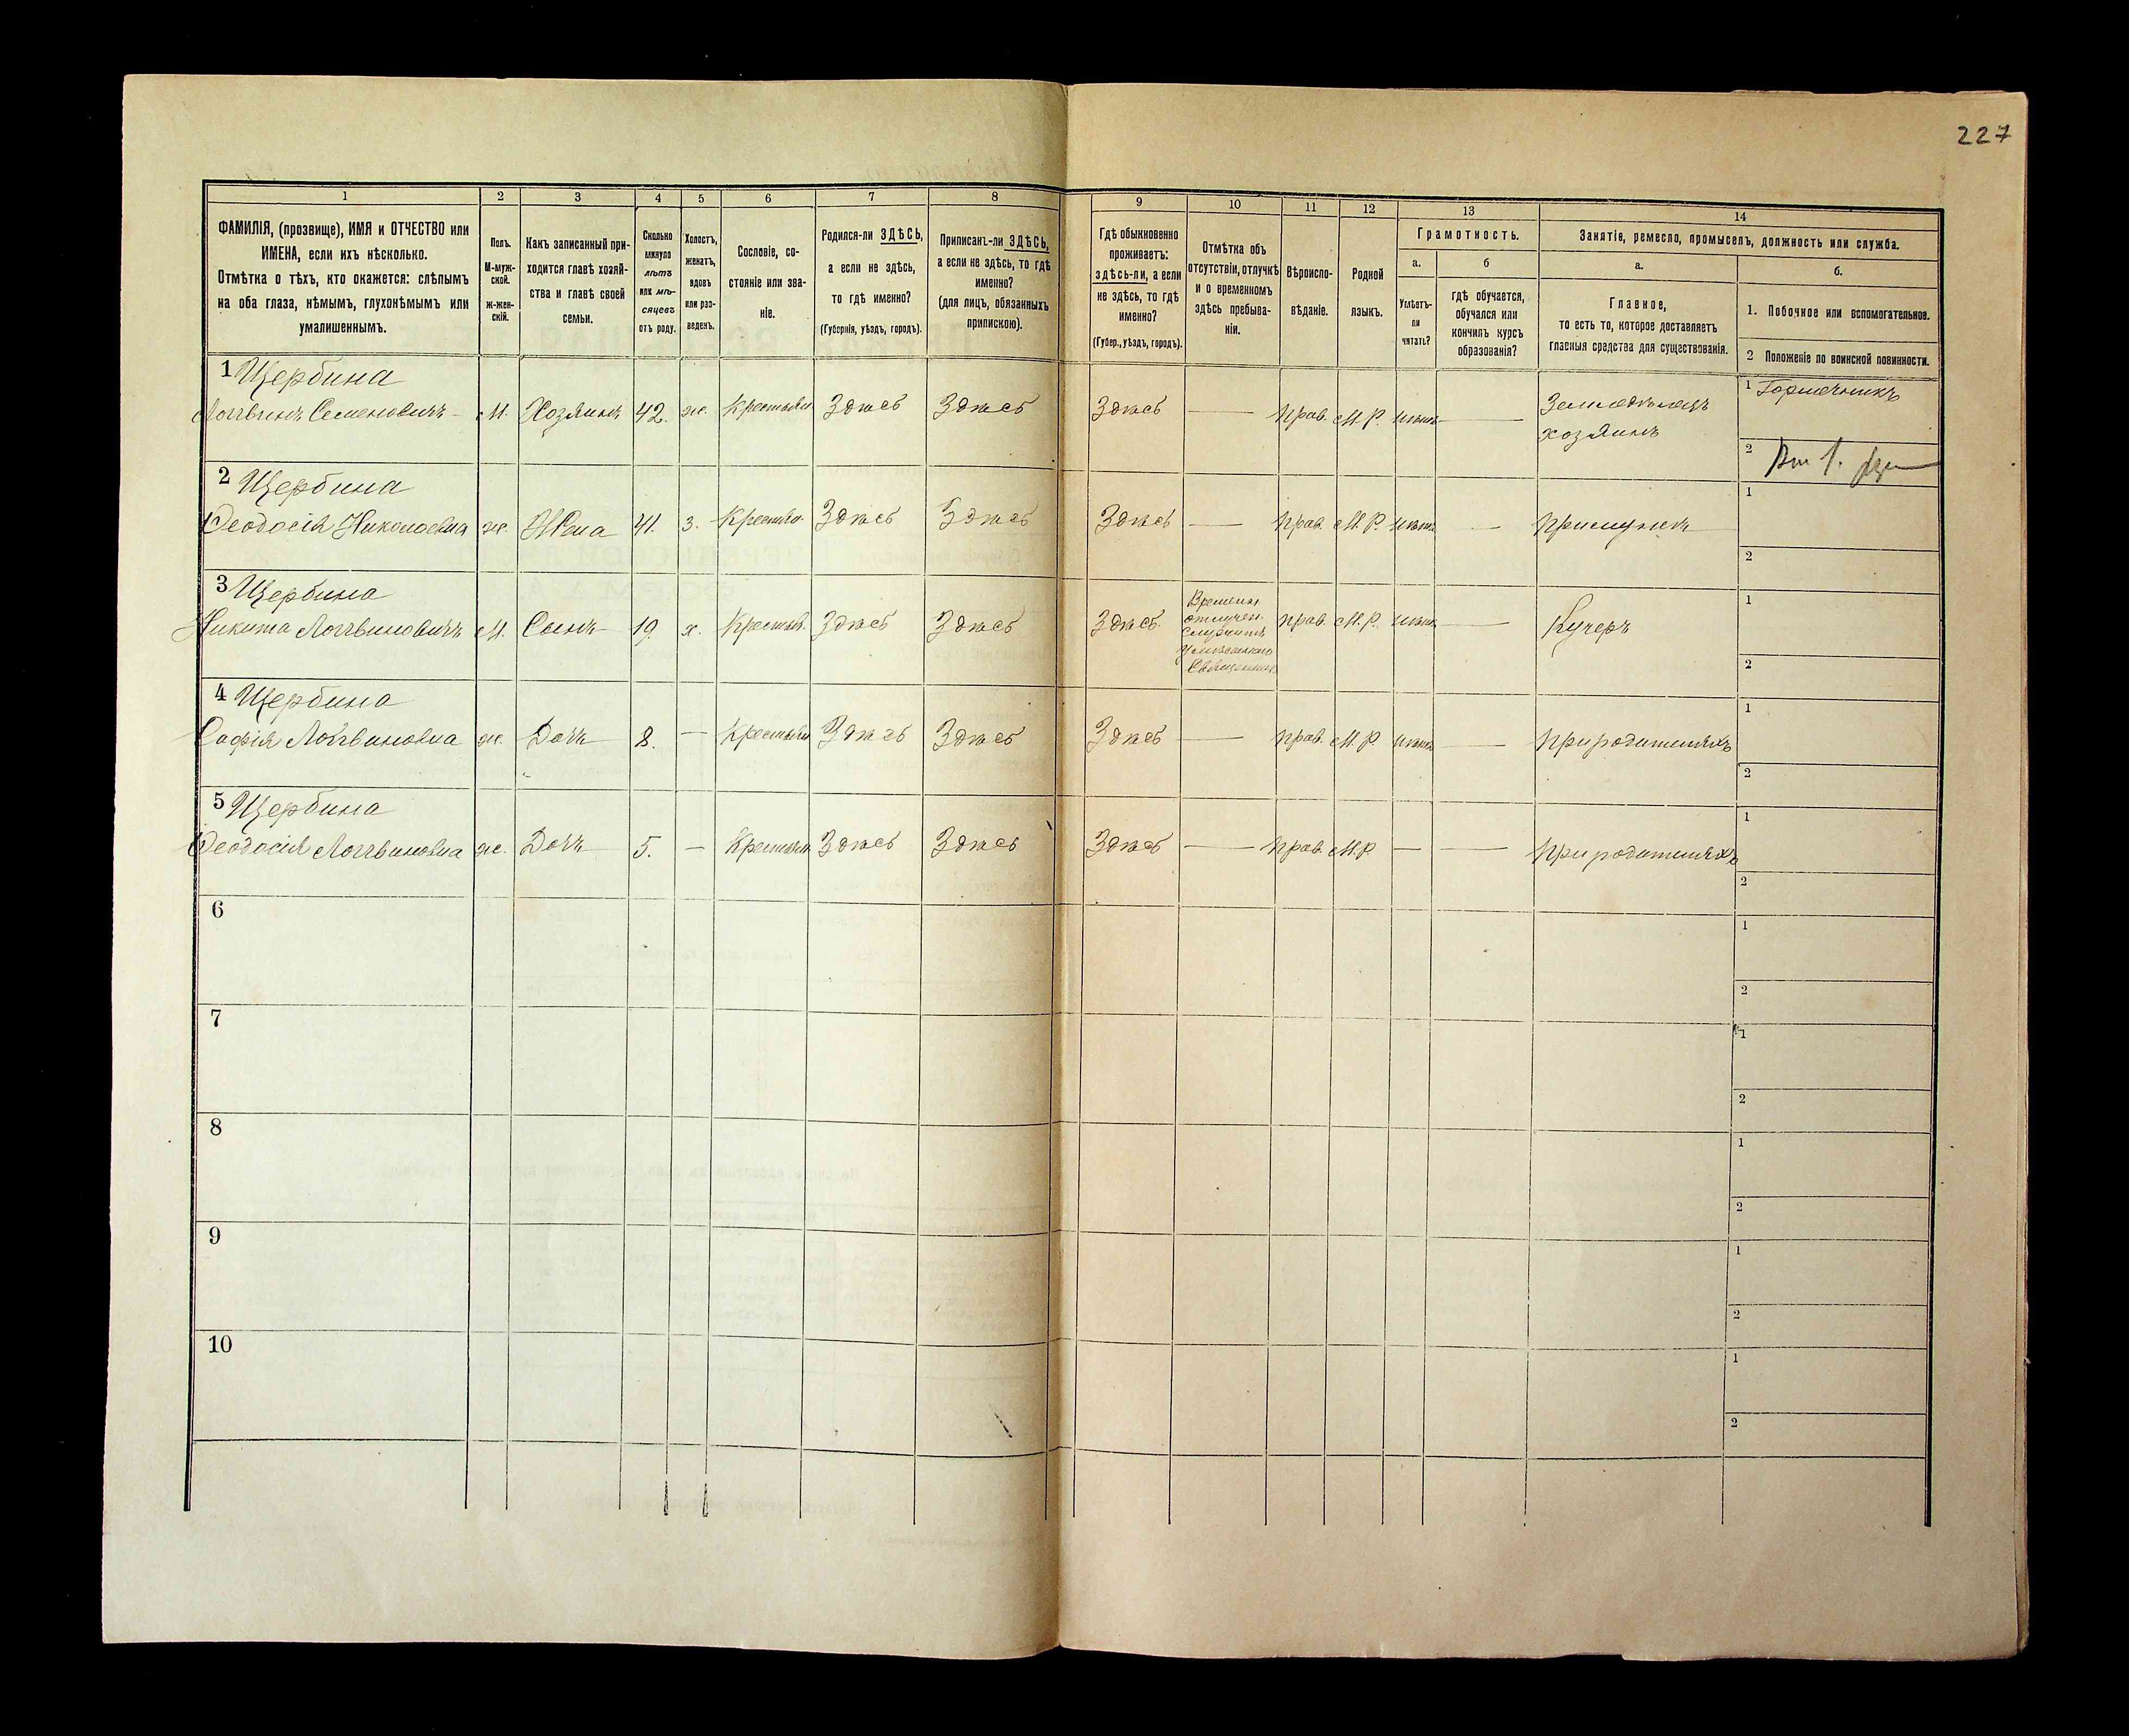 227
1
2
3
4
5
6
7
8
9
10
11
12
13
14
ФАМИЛІЯ, (прозвище), ИМЯ и ОТЧЕСТВО или
ИМЕНА, если ихъ нѣсколько.
Отмѣтка о тѣхъ, кто окажется: слѣпымъ
на оба глаза, нѣмымъ, глухонѣмымъ или
умалишеннымъ.
Полъ.
М-муж-
ской.
ж-жен-
скій.
Какъ записанный при-
ходится главѣ хозяй-
ства и главѣ своей
семьи.
Сколько
минуло
лѣтъ
или мѣ-
сяцевъ
отъ роду.
Холостъ,
женатъ,
вдовъ
или раз-
веденъ.
Сословіе, со-
стояніе или зва-
ніе.
Родился-ли ЗДѢСЬ,
а если не здѣсь,
то гдѣ именно?
(Губернія, уѣздъ, городъ).
Приписанъ-ли ЗДѢСЬ,
а если не здѣсь, то гдѣ
именно?
(для лицъ, обязанныхъ
припискою).
Гдѣ обыкновенно
проживаетъ:
здѣсь-ли, а если
не здѣсь, то гдѣ
именно?
(Губер., уѣздъ, городъ).
Отмѣтка объ
отсутствіи, отлучкѣ
и о временномъ
здѣсь пребыва-
ніи.
Вѣроиспо-
вѣданіе.
Родной
языкъ.
Грамотность.
а.
Умѣетъ-
ли
читать?
б
гдѣ обучается,
обучался или
кончилъ курсъ
образованія?
Занятіе, ремесло, промыселъ, должность или служба.
а.
Главное,
то есть то, которое доставляетъ
главныя средства для существованія.
б.
1. Побочное или вспомогательное.
2 Положеніе по воинской повинности.
1 Щербина
Логвинъ Семеновичъ - М. Хозяинъ 42. ж. Крестьян. Здѣсь Здѣсь Здѣсь — прав. М.Р. — Земледѣлецъ
хозяинъ
1 Горшечникъ
2
2 Щербина
Ѳеодосія Николаевна ж. Жена 41. з. Крестьян. Здѣсь Здѣсь Здѣсь — прав. М.Р. —
1
2
3 Щербина
Никита Логвиновичъ М. Сынъ 19. х. Крестьян. Здѣсь Здѣсь Здѣсь.
Времена
отлучен.
служитъ
прав. М.Р. — Кучеръ
1
2
4 Щербина
Софія Логвиновна ж. Дочь 8. — Крестьян Здѣсь Здѣсь Здѣсь — прав. М.Р. — при родителяхъ
1
2
5 Щербина
Ѳеодосія Логвиновна ж. Дочь 5. — Крестьян Здѣсь Здѣсь Здѣсь — прав. М.Р. — — при родителяхъ
1
2
6
1
2
7
1
2
8
1
2
9
1
2
10
1
2